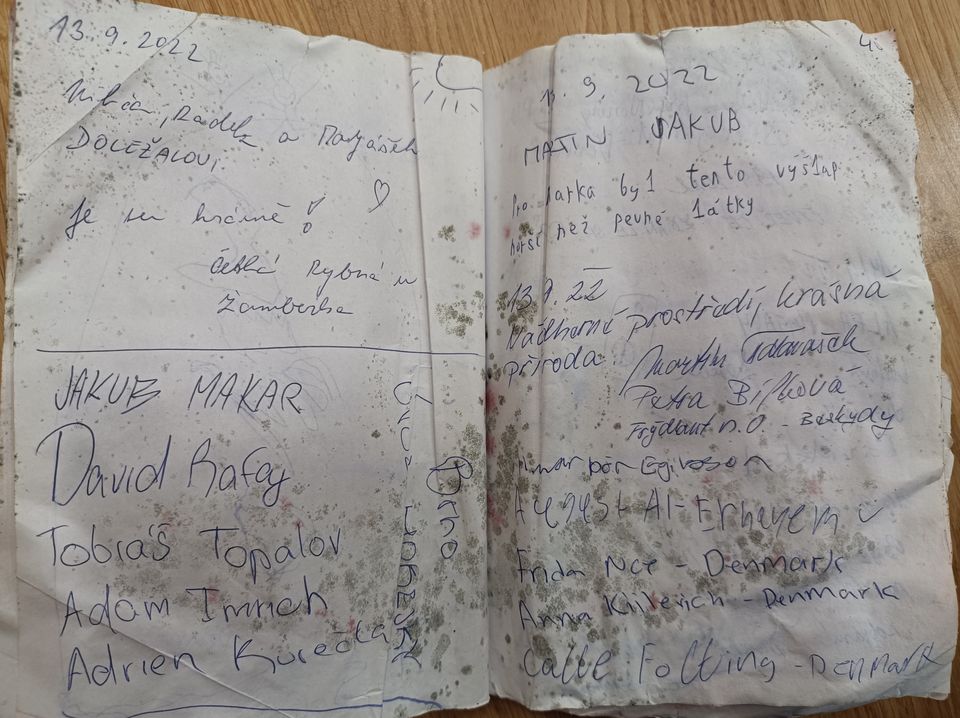 13.9.2022
Radek a Matyášek
DOLEŽALOVI,
Je to krásné!
Česká Rybná u
Žamberka
JAKUB MAKAR
David Rafay
Tobiáš Topalov
Adam Imrich
Adrien Kurečka
Brno
13. 9. 2022
MARTIN JAKUB
Pro Marka byl tento výšlap
horší než pevné látky
13.9.22
Nádherné prostředí, krásná
příroda. Martin
Petra Bílková
Frýdlant n.O. - Beskydy
August Al-
Frida - Denmark
Anna Killerich - Denmark
Calle Folting - DENMARK